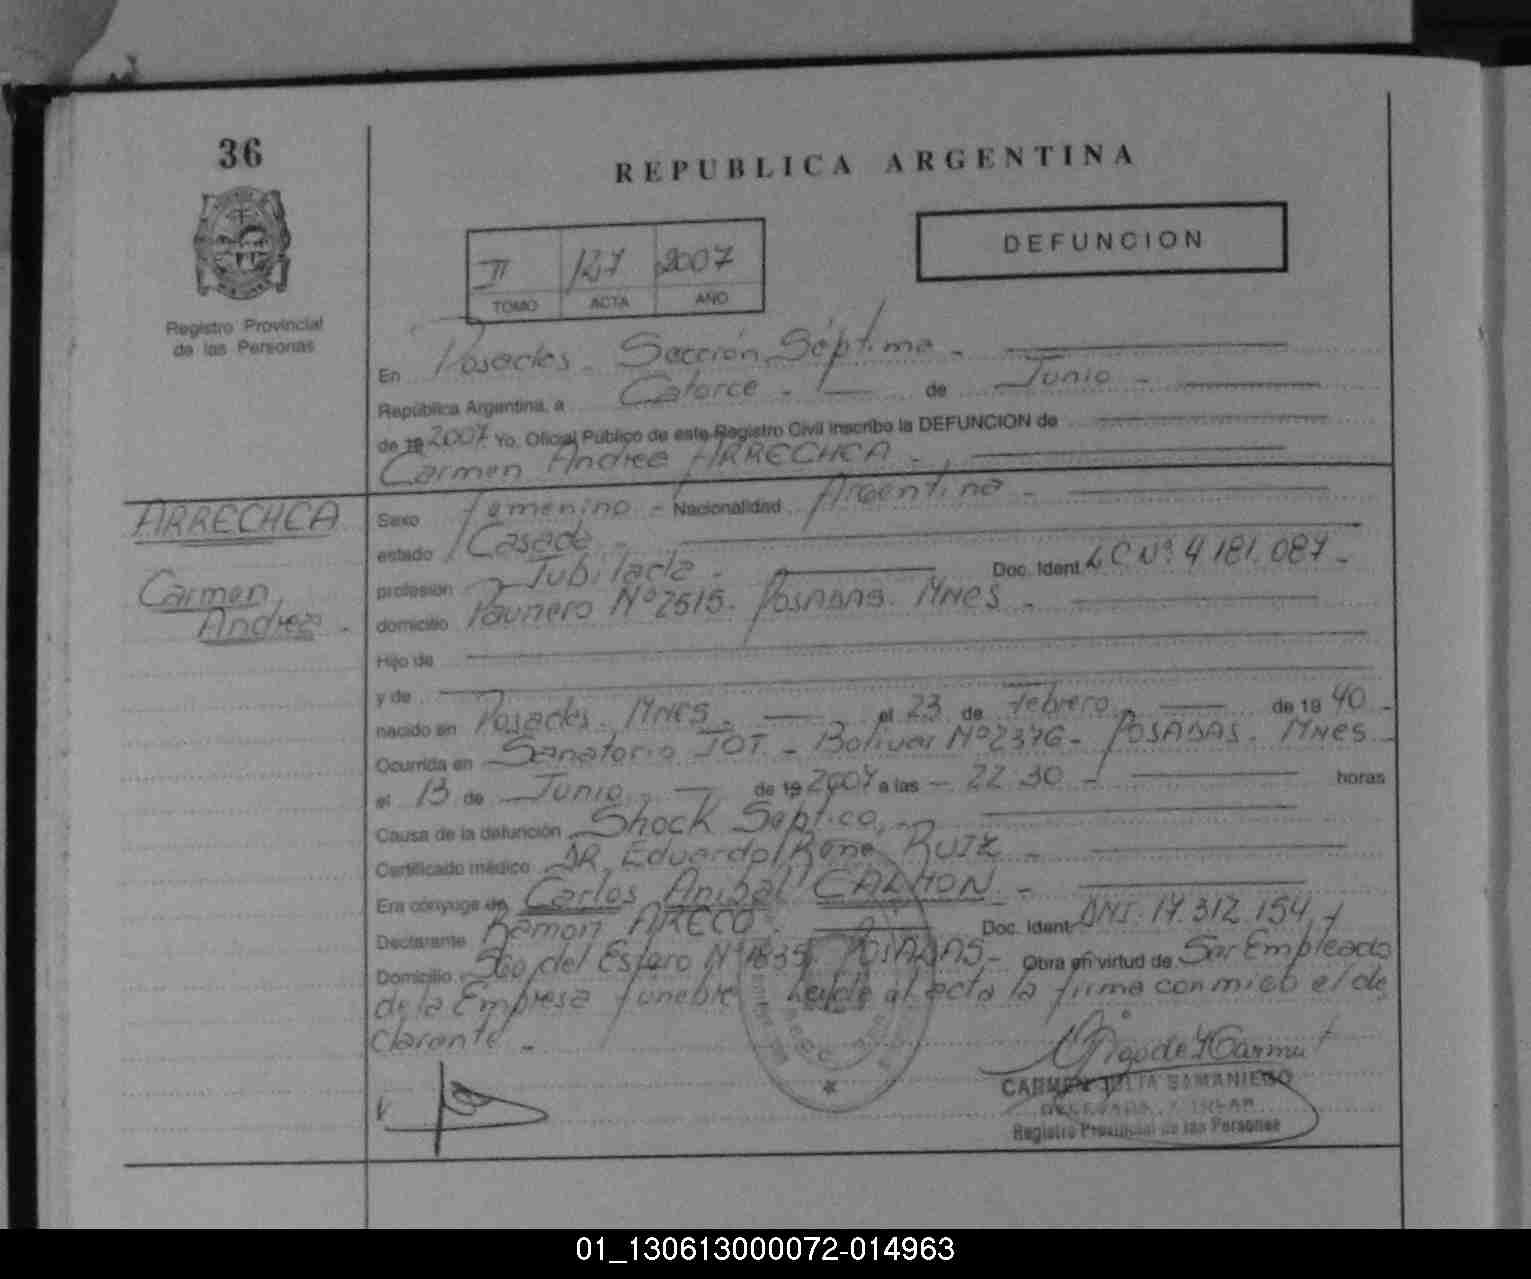 36
REPUBLICA ARGENTINA
DEFUNCION
II 127 2007
TOMO ACTA AÑO
Registro Provincial
de las Personas
En Posadas - Sección Séptima -
República Argentina, a Catorce - de Junio -
de 19 2007 Yo, Oficial Público de este Registro Civil inscribo la DEFUNCION de
Carmen Andrea ARRECHEA -
ARRECHEA
Carmen
Andrea -
Sexo femenino - Nacionalidad Argentina -
estado Casada -
profesión Jubilada - Doc. Ident. LC Nº 4 181.087 -
domicilio Paunero Nº 2515. POSADAS. MNES -
Hijo de
y de
nacido en Posadas. MNES. el 23 de febrero de 19 40 -
Ocurrida en Sanatorio IOT - Bolivar Nº 2376 - POSADAS. MNES -
el 13 de Junio - de 19 2007 a las - 22 30 - horas
Causa de la defunción Shock Septico, -
Certificado médico DR Eduardo Rene RUIZ -
Era cónyuge de Carlos Anibal CALHON -
Declarante Ramon ARECO. Doc. Ident. DNI. 17.312.154
Domicilio Sgo del Estero Nº 1835 POSADAS - Obra en virtud de Ser Empleado
de la Empresa funebre leída el acta la firma conmigo el de
clarante -
CARMEN JULIA SAMANIEGO
DELEGADA TITULAR
Registro Provincial de las Personas
01_130613000072-014963